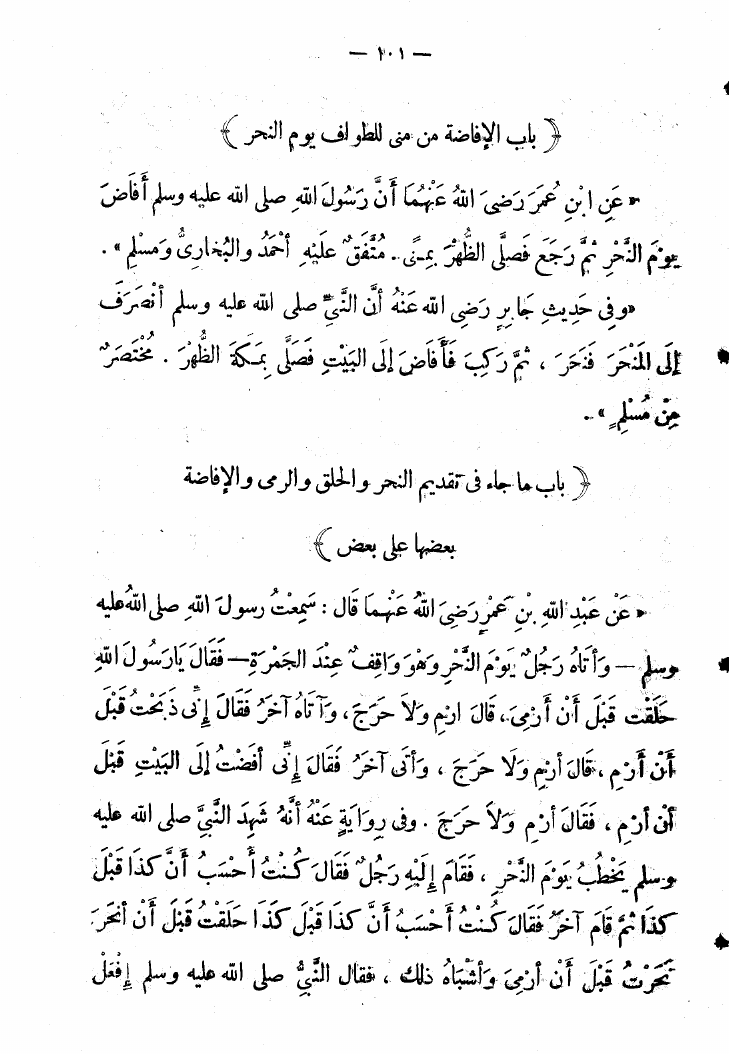 — ٢٠١ —
﴿ باب الإفاضة من منى للطواف يوم النحر ﴾
« عَنِ ابْنِ عُمَرَ رَضِىَ اللهُ عَنْهُمَا أَنَّ رَسُولَ اللهِ صلى الله عليه وسلم أَفَاضَ
يَوْمَ النَّحْرِ ثُمَّ رَجَعَ فَصَلَّى الظُّهْرَ بِمِنًى . مُتَّفَقٌ عَلَيْهِ أَحْمَدُ والبُخارِىُّ وَمُسْلِمٌ » .
«وفى حَدِيثِ جَابِرٍ رَضِى اللهُ عَنْهُ أَنَّ النَّبِىَّ صلى الله عليه وسلم أنْصَرَفَ
إلَى المَنْحَرَ فَنَحَرَ ، ثُمَّ رَكِبَ فَأَفَاضَ إلَى البَيْتِ فَصَلَّى بِمَكَّةَ الظُّهْرَ . مُخْتَصَرٌ
مِنْ مُسْلِمٍ » .
﴿ باب ما جاء فى تقديم النحر والحلق والرمى والإفاضة
بعضها على بعض ﴾
« عَنْ عَبْدِ اللهِ بْنِ عَمْرٍ رَضِىَ اللهُ عَنْهِمَا قَال : سَمِعْتُ رسولَ اللهِ صلى اللهُ عليه
وسلم — وَأَتَاهُ رَجُلٌ يَوْمَ النَّحْرِ وَهْوَ وَاقِفٌ عِنْدَ الجَمْرَةِ — فَقَالَ يَارَسُولَ اللهِ
حَلَقْت قَبْلَ أَنْ أَرْمِىَ ، قَالَ ارْمِ وَلاَ حَرَجَ ، وَآتَاهُ آخَرُ فَقَالَ إِنِّى ذَبَحْتُ قَبْلَ
أَنْ أَرْمِ ، قَالَ أَرْمِ وَلَا حَرَجَ ، وَأَتَى آخَرُ فَقَالَ إِنِّى أَفَضْتُ إلَى البَيْتِ قَبْلَ
أَنْ أَرْمِ ، فَقَالَ أرْمِ وَلاَ حَرَجَ . وفى رِوَايَةٍ عَنْهُ أَنَّهُ شَهِدَ النَّبِىَّ صلى الله عليه
وسلم يَخْطُبُ يَوْمَ النَّحْرِ ، فَقَامَ إِلَيْهِ رَجُلٌ فَقَالَ كُنْتُ أَحْسَبُ أَنَّ كَذَا قَبْلَ
كَذَا ثُمَّ قَامَ آخَرُ فَقَالَ كُنْتُ أَحْسَبُ أَنَّ كَذَا قَبْلَ كَذَا حَلَقْتُ قَبْلَ أَن أَنْحَرَ
نَحَرْتُ قَبْلَ أَنْ أَرْمِىَ وَأَشْبَاهُ ذلك ، فقال النَّبىُّ صلى الله عليه وسلم إفْعَلْ